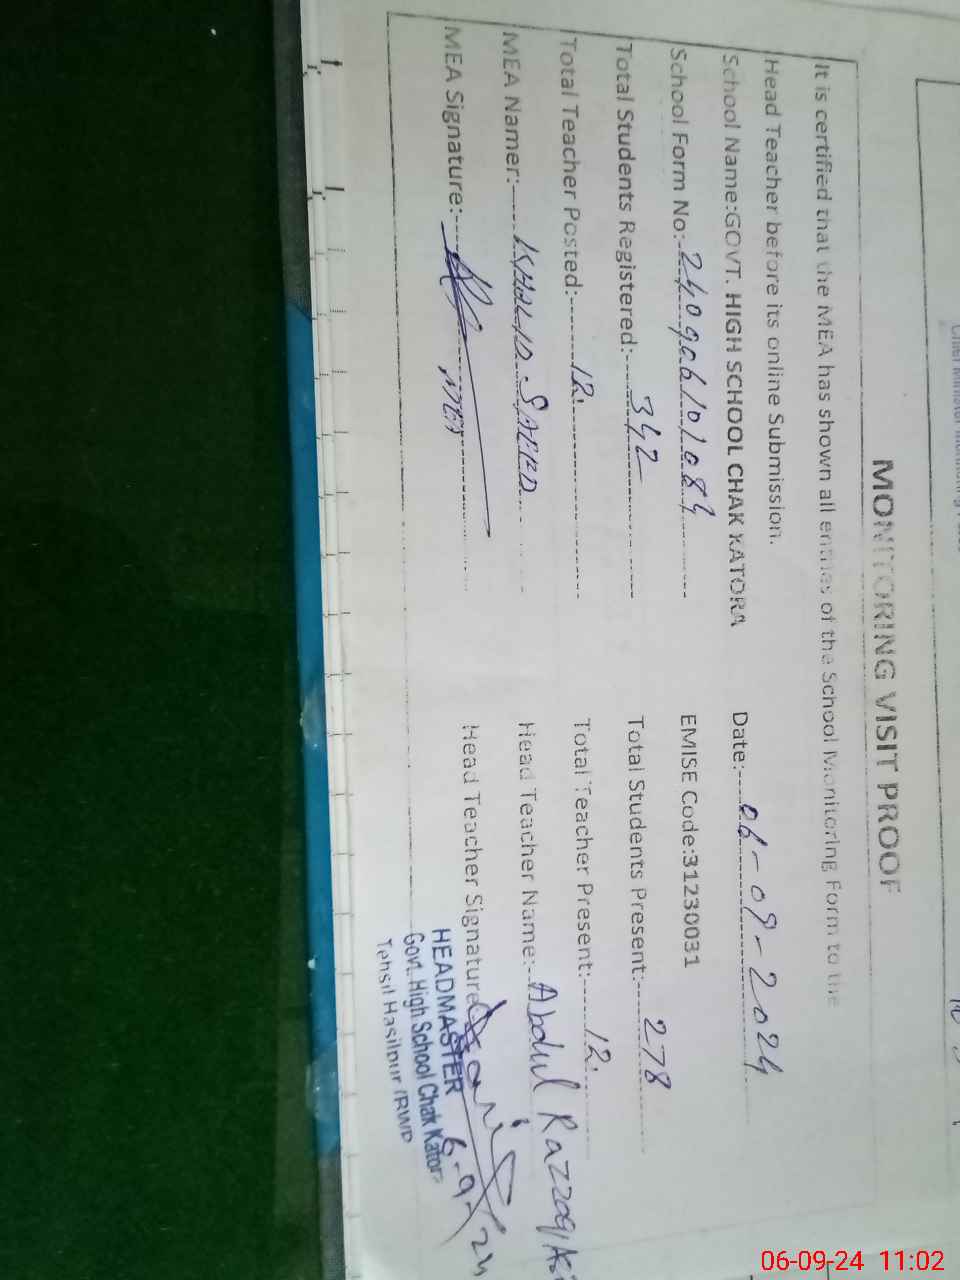 MONITORING VISIT PROOF
It is certified that the MEA has shown all entries of the School Monitoring Form to the
Head Teacher before its online Submission.
School Name:GOVT. HIGH SCHOOL CHAK KATORA Date:- 06-09-2024
School Form No:- EMISE Code:31230031
Total Students Registered:- 342 Total Students Present:- 278
Total Teacher Posted:- 12. Total Teacher Present:- 12.
MEA Namer:- KHALID SAEED Head Teacher Name:- Abdul Razzaq
MEA Signature:- MEA Head Teacher Signature 6-9/24
HEADMASTER
Govt. High School Chak Kator
Tehsil Hasilpur (BWP
06-09-24 11:02